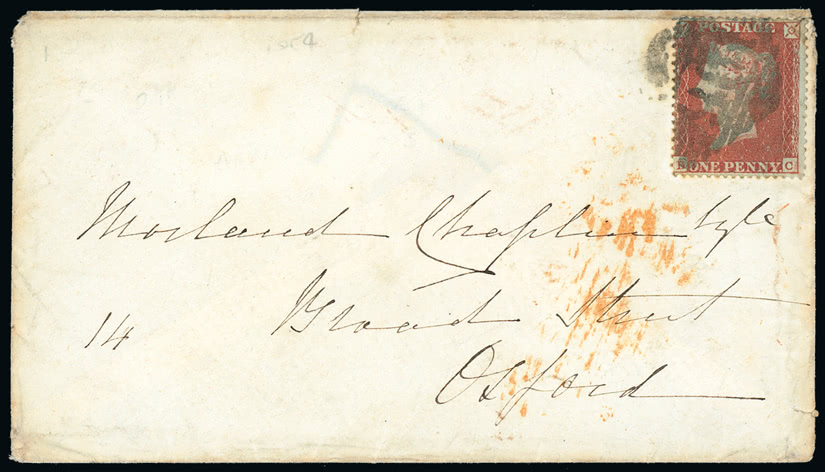 POSTAGE
ONE PENNY C
Morland Chaplin Esqre
14 Broad Street
Oxford